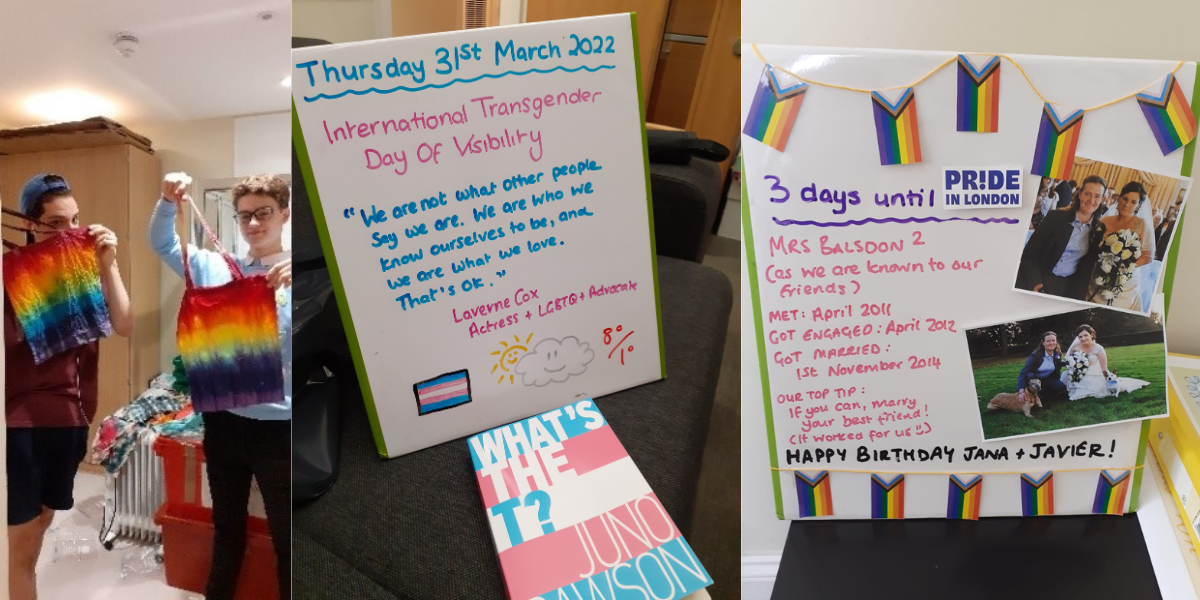 Thursday 31st March 2022
International Transgender
Day Of Visibility
"We are not what other people
Say we are. We are who we
know ourselves to be, and
we are what we love.
That's OK."
Laverne Cox
Actress + LGBTQ+ Advocate
8°/1°
WHAT'S
THE
T?
JUNO
DAWSON
3 days until PR!DE
IN LONDON
MRS BALSDON 2
(as we are known to our
friends)
MET: April 2011
GOT ENGAGED: April 2012
GOT MARRIED:
1st November 2014
OUR TOP TIP:
If you can, marry
your best friend!
(It worked for us ☺)
HAPPY BIRTHDAY JANA + JAVIER!